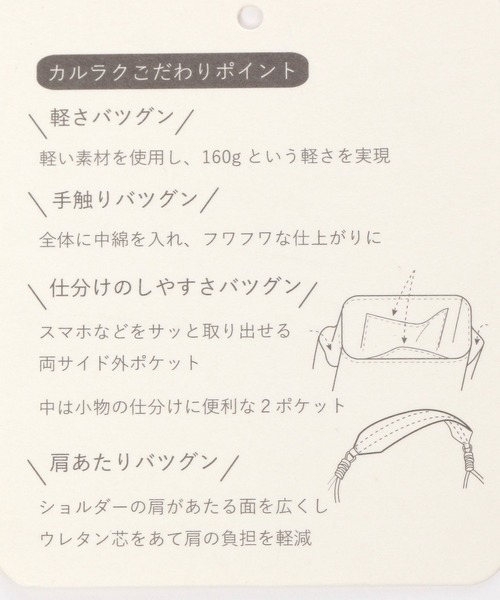 カルラクこだわりポイント
軽さバツグン
軽い素材を使用し、160g という軽さを実現
手触りバツグン
全体に中綿を入れ、フワフワな仕上がりに
仕分けのしやすさバツグン
スマホなどをサッと取り出せる
両サイド外ポケット
中は小物の仕分けに便利な 2 ポケット
肩あたりバツグン
ショルダーの肩があたる面を広くし
ウレタン芯をあて肩の負担を軽減